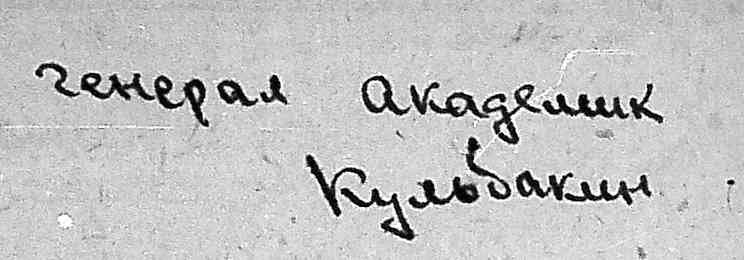 генерал Академик
Кульбакин